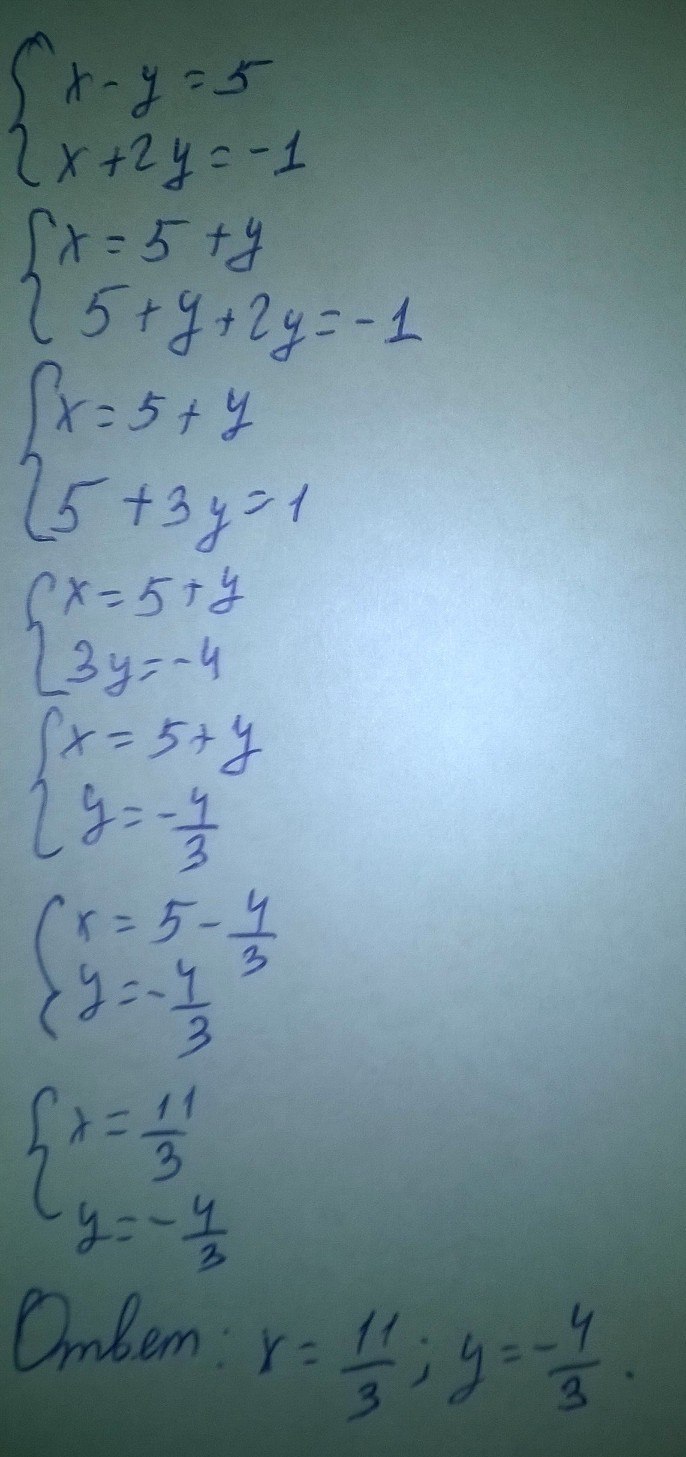 x - y = 5
x + 2y = -1
x = 5 + y
5 + y + 2y = -1
x = 5 + y
5 + 3y = 1
x = 5 + y
3y = -4
x = 5 + y
y = -4/3
x = 5 - 4/3
y = -4/3
x = 11/3
y = -4/3
Ответ: x = 11/3; y = -4/3.